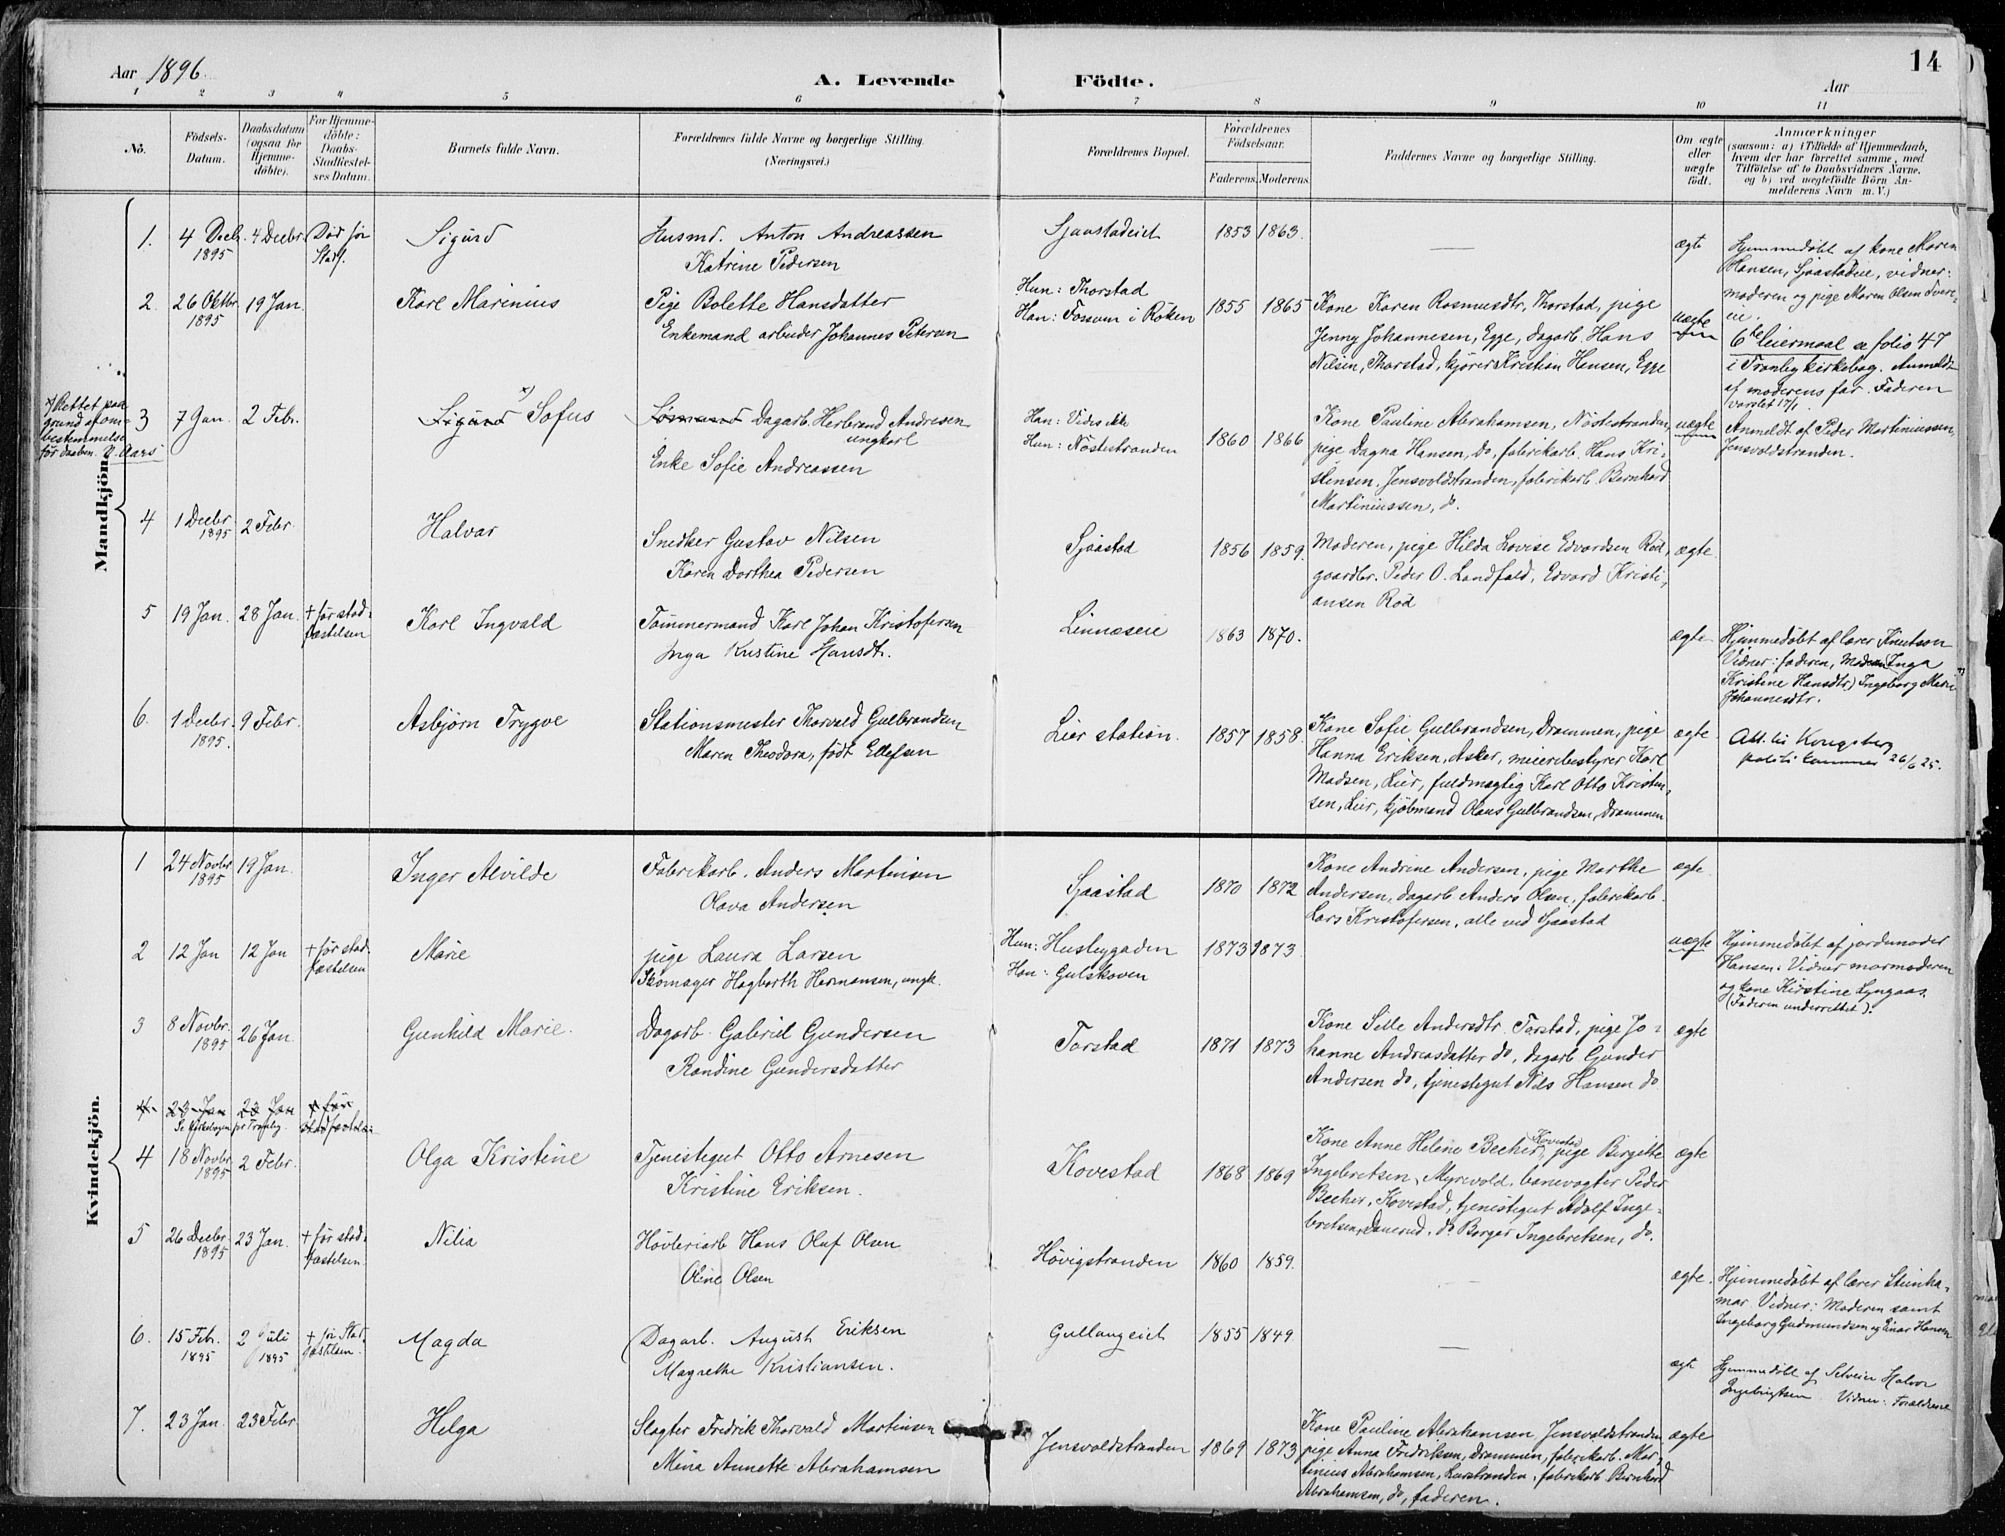 Aar 1896.
A. Levende Födte.
Aar
14
1 2 3 4 5 6 7 8 9 10 11
Nö.
Födsels-Datum.
Daabsdatum (ogsaa for Hjemme-döbte).
For Hjemme-döbte: Daabs-Stadfæstel-ses Datum.
Barnets fulde Navn.
Forældrenes fulde Navne og borgerlige Stilling. (Næringsvei.)
Forældrenes Bopæl.
Forældrenes Födselsaar.
Faderens. Moderens.
Faddernes Navne og borgerlige Stilling.
Om ægte eller uægte födt.
Anmærkninger (saasom: a) i Tilfælde af Hjemmedaab, hvem der har forrettet samme, med Tilföielse af to Daabsvidners Navne, og b) ved uægtefödte Börn Anmelderens Navn m. V.)
Mandkjön.
1. 4 Decb. 1895 4 Decbr. Död før Stadf. Sigurd
Husmd. Anton Andreassen
Katrine Pedersen
Sjaastadeiet 1853 1863. — ægte
Hjemmedøbt af kone Maren
Hansen, Sjaastadeie, vidner:
moderen og pige Maren Olsen
2. 26 Oktbr. 1895 19 Jan. Karl Marinius
Pige Bolette Hansdatter
Enkemand arbeider Johannes Petersen
Hun: Thorstad
Han: Fossum i Röken
1855 1865
Kone Karen Rasmusdtr, Thorstad, pige
Jenny Johannesen, Egge, dagarb. Hans
Nilsen, Thorstad, kjører Kristian Hansen, Egge
uægte
6te leiermaal se folio 47
i Tranby kirkebog. Anmeldt
af moderens far. Faderen
varslet 17/1.
x) Rettet paa
grund af om-
bestemmelse
før daaben. Aars
3 7 Jan. 2 Febr. Sigurd x) Sofus
Dagarb. Herbrand Andresen
ungkarl
Enke Sofie Andreassen
Han: Vides ikke
Hun: Nöstestranden
1860 1866
Kone Pauline Abrahamsen, Nöstestranden,
pige Dagna Hansen, do, fabrikarb. Hans Kri-
stensen, Jensvoldstranden, fabrikarb. Bernhard
Martiniussen, do.
uægte
Anmeldt af Peder Martiniussen,
Jensvoldstranden.
4 1 Decbr. 1895 2 Febr. Halvar
Snedker Gustav Nilsen
Karen Dorthea Pedersen
Sjaastad 1856 1859.
Moderen, pige Hilda Lovise Edvardsen Röd,
gaardbr. Peder O. Landfald, Edvard Kristi-
ansen Röd
ægte
5 19 Jan. 28 Jan. + før stad-fæstelsen Karl Ingvald
Tømmermand Karl Johan Kristofersen
Inga Kristine Hansdtr.
Linnæseie 1863 1870. ægte
Hjemmedøbt af lærer Knutson
Vidner: faderen, Moderen (Inga
Kristine Hansdtr) Ingeborg Marie
Johannesdtr.
6. 1 Decbr. 1895. 9 Febr. Asbjørn Trygve
Stationsmester Thorvald Gulbrandsen
Maren Theodora, født Ellefsen
Lier station. 1857 1858.
Kone Sofie Gulbrandsen, Drammen, pige
Hanna Eriksen, Asker, meieribestyrer Karl
Madsen, Lier, fuldmægtig Karl Otto Kristen-
sen, Lier, kjøbmand Olaus Gulbrandsen, Drammen
ægte
Att. til Kongsberg
politikammer 26/6 25.
Kvindekjön.
1 24 Novbr 1895 19 Jan. Inger Alvilde
Fabrikarb. Anders Martinsen
Olava Andersen
Sjaastad 1870 1872
Kone Andrine Andersen, pige Marthe
Andersen, dagarb Anders Olsen, fabrikarb.
Lars Kristofersen, alle ved Sjaastad
ægte
2 12 Jan 12 Jan + før stad-fæstelsen Marie
pige Laura Larsen
Skomager Hagbarth Hermansen, ungk.
Hun: Husebygaden
Han: Gulskoven
1873 1873. uægte
Hjemmedøbt af jordemoder
Hansen. Vidner mormoderen
og kone Kirstine Lyngaas.
(Faderen underrettet).
3 8 Novbr. 1895 26 Jan. Gunhild Marie.
Dagarb. Gabriel Gundersen
Randine Gundersdatter
Torstad 1871 1873
Kone Sille Andersdtr. Torstad, pige Jo-
hanne Andreasdatter do, dagarb Gunder
Andersen do, tjenestegut Nils Hansen do
ægte
4. 23 Jan 23 Jan + før stadfæstelse
Se kirkebogen for Tranby.
4 18 Novbr 1895 2 Febr. Olga Kristine
Tjenestegut Otto Arnesen
Kristine Eriksen.
Kovestad 1868 1869
Kone Anne Helene Becher, Kovestad, pige Birgitte
Ingebretsen, Myrvold, banevogter Peder
Becher, Kovestad, tjenestegut Adolf Inge-
bretsen, Danerud, do Borger Ingebretsen, do.
ægte
5 26 Decbr 1895 23 Jan. + før stad-fæstelsen. Nilia
Høvleriarb Hans Oluf Olsen
Oline Olsen
Høvigstranden 1860 1859. — ægte.
Hjemmedøbt af lærer Steinha-
mar. Vidner: Moderen samt
Ingeborg Gudmundsen og Einar Hansen
6. 15 Feb. 1895 2 Juli 1895 + før Stad-fæstelsen. Magda
Dagarb. August Eriksen
Magrethe Kristiansen.
Gullaugeiet 1855 1849 — ægte
Hjemmedøbt af Halvor
Ingebrigtsen. Vidner: Forældrene
7. 23 Jan. 23 Febr. Helga
Slagter Fredrik Thorvald Martinsen
Mina Annette Abrahamsen
Jensvoldstranden 1869 1873
Kone Pauline Abrahamsen, Jensvoldstranden,
pige Anna Fredriksen, Drammen, fabrikarb. Mar-
tinius Abrahamsen, Lierstranden, fabrikarb Bernhard
Abrahamsen, do, faderen.
ægte